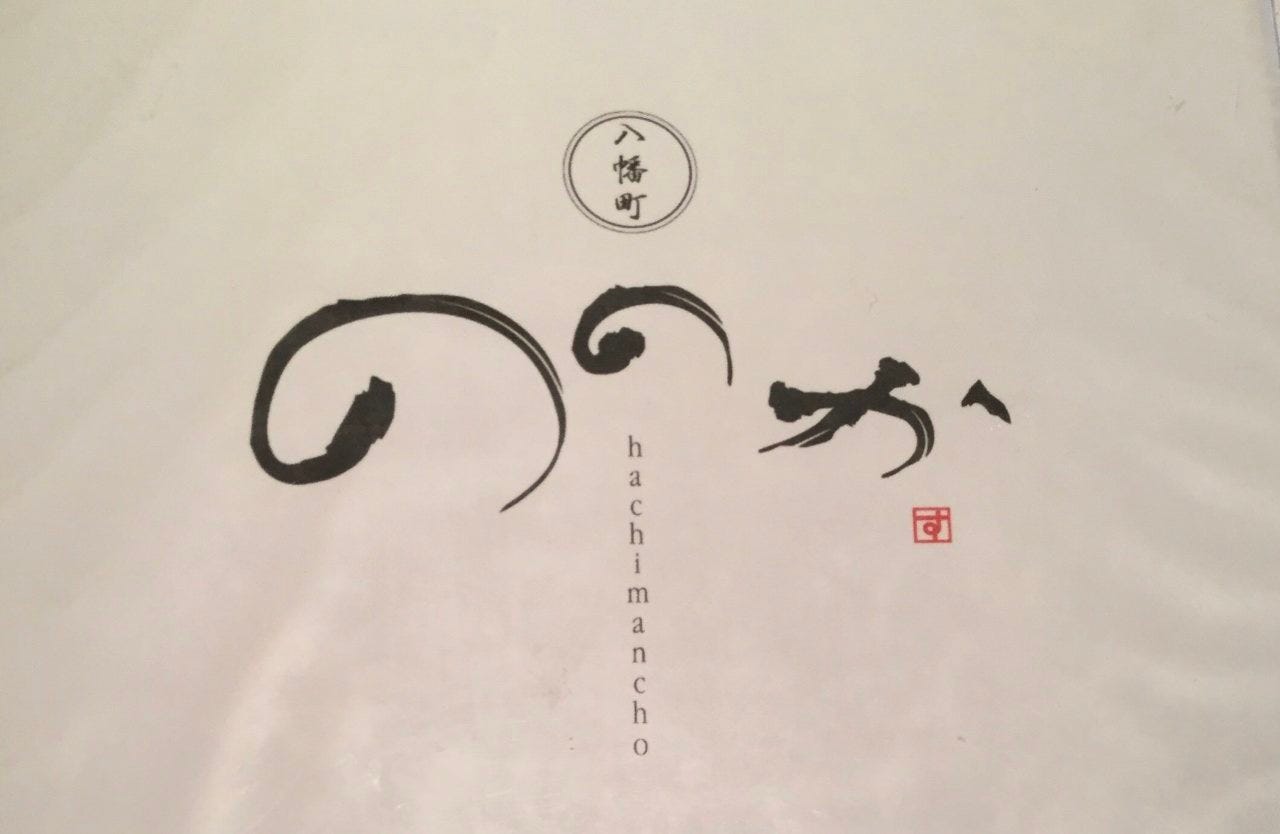 八幡町
ののか
す
hachimancho